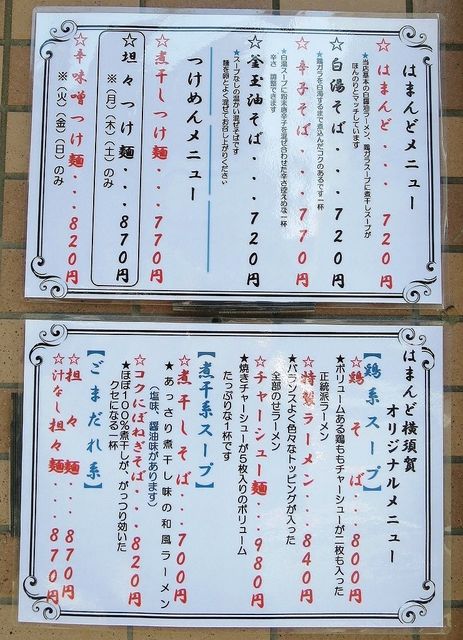 はまんどメニュー
☆はまんど...720円
★当店基本の白醤油ラーメン、鶏ガラスープに煮干しスープが
ほんのりとマッチしています
☆白湯そば...720円
★鶏ガラを白濁するまで煮込んだコクのあるです一杯
☆辛子そば...770円
★白湯スープに粉末唐辛子を混ぜ合わせた辛さ控えめな一杯
辛さ調整できます
☆釜玉油そば...720円
★スープなしの温かい混ぜそばです
麺を卵とよく混ぜてお召し上がりください
つけめんメニュー
☆煮干しつけ麺...770円
☆担々つけ麺...870円
※(月)(木)(土)のみ
☆辛味噌つけ麺...820円
※(火)(金)(日)のみ
はまんど横須賀
オリジナルメニュー
【鶏系スープ】
☆鶏そば...800円
★ボリュームある鶏ももチャーシューが二枚も入った
正統派ラーメン
☆特製ラーメン...840円
★バランスよく色々なトッピングが入った
全部のせラーメン
☆チャーシュー麺...980円
★焼きチャーシューが5枚入りのボリューム
たっぷりな1杯です
【煮干系スープ】
☆煮干しそば...700円
★あっさり煮干し味の和風ラーメン
(塩味、醤油味があります)
☆コクにぼねぎそば...820円
★ほぼ100%煮干しが、がっつり効いた
クセになる一杯
【ごまだれ系】
☆担々麺...870円
☆汁なし担々麺...870円